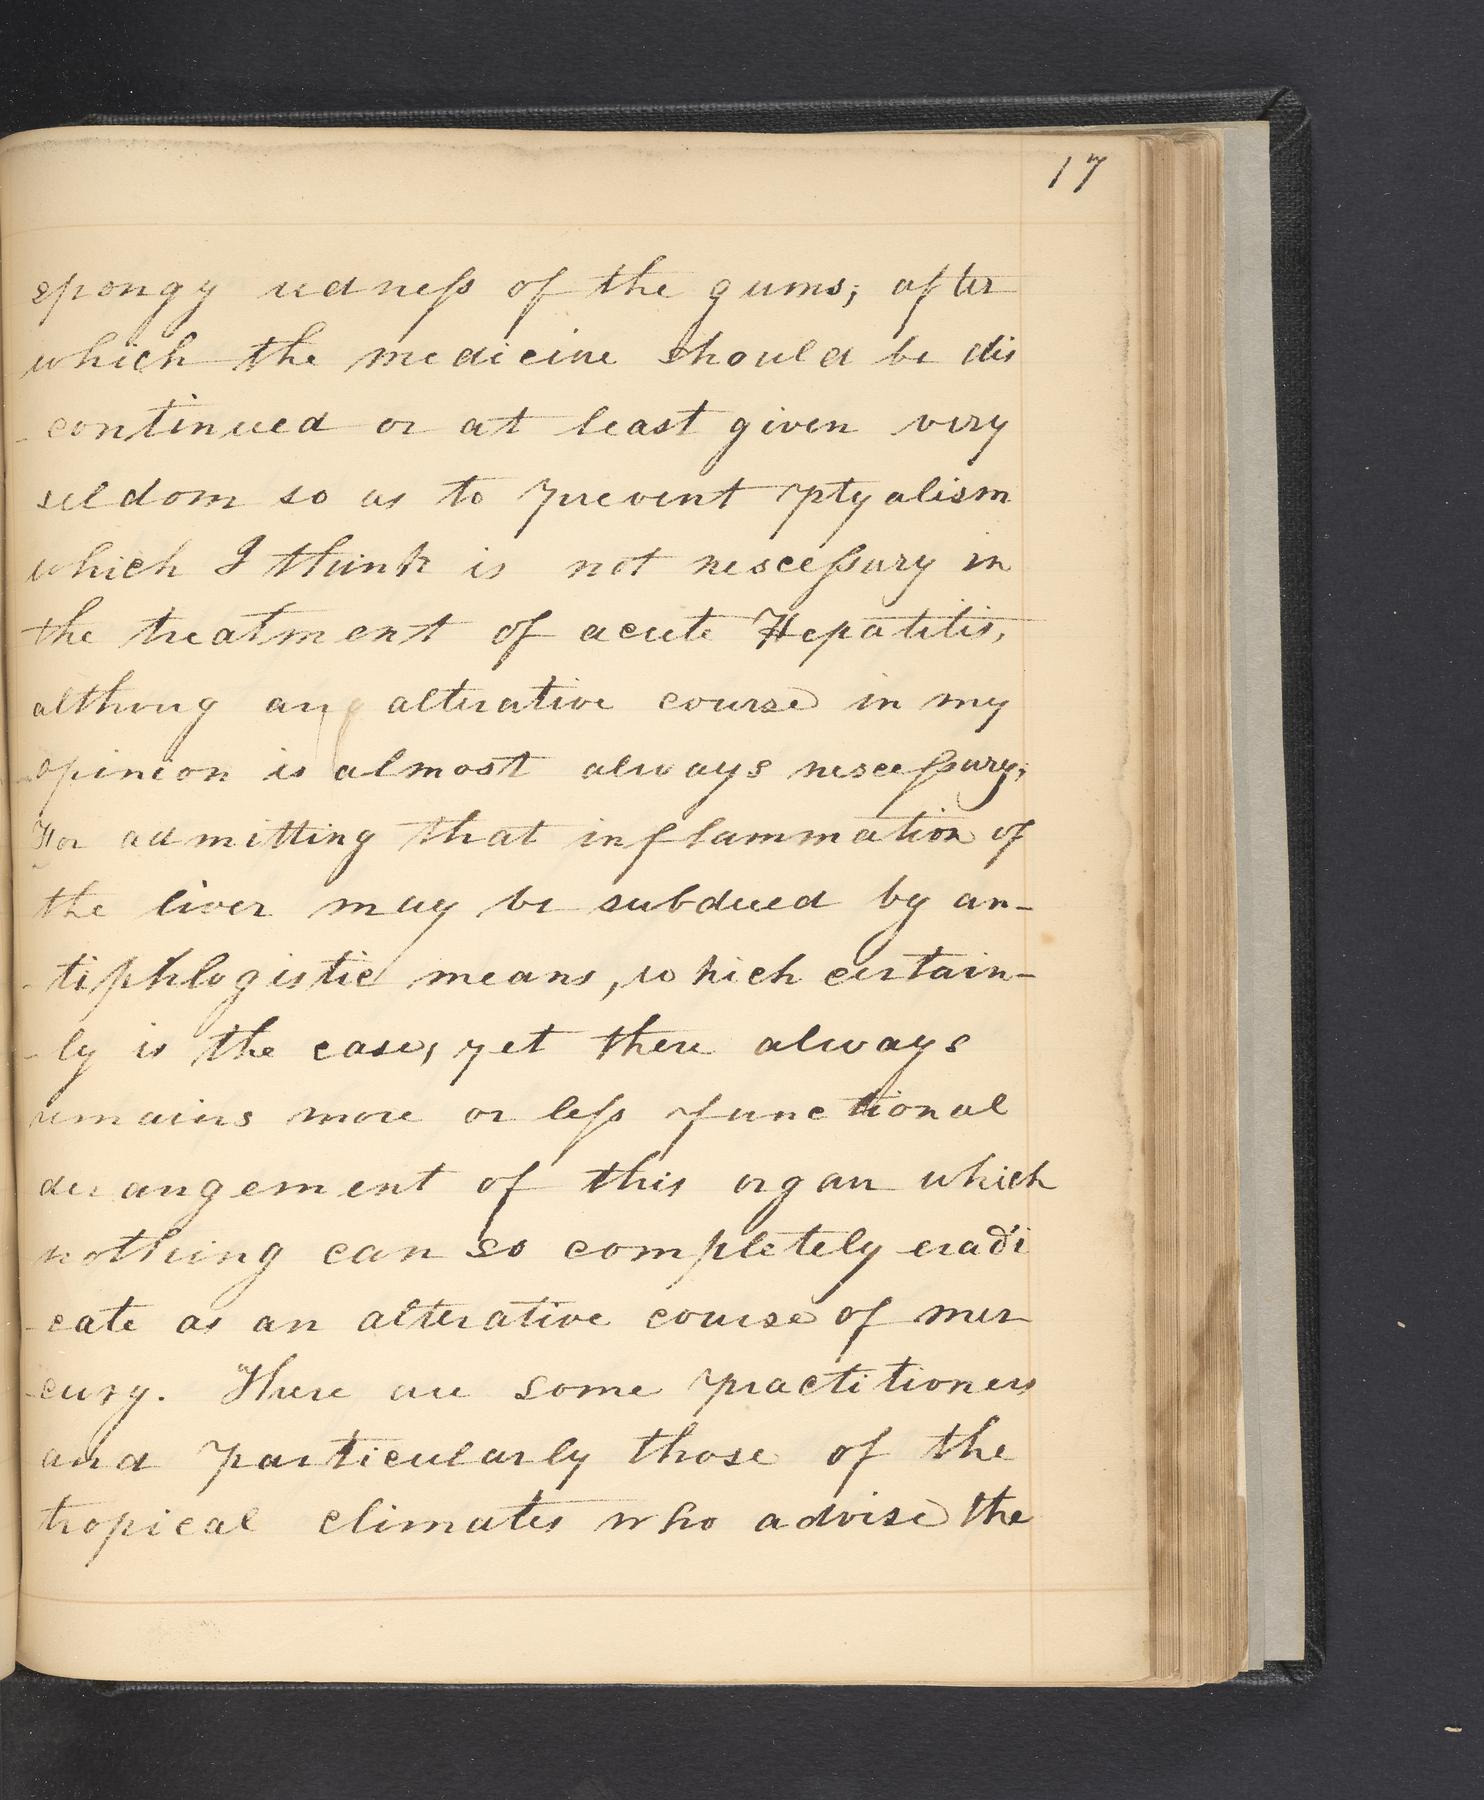 17
spongy redness of the gums; after
which the medicine should be dis
-continued or at least given very
seldom so as to prevent ptyalism
which I think is not nescessary in
the treatment of acute Hepatitis,
althoug an alterative course in my
opinion is almost always nescessary;
For admitting that inflammation of
the liver may be subdued by an-
-tiphlogistic means, which certain-
-ly is the case, yet there always
remains more or less functional
derangement of this organ which
nothing can so completely eradi
-cate as an alterative course of mer
-cury. There are some practitioners
and particularly those of the
tropical climates who advise the